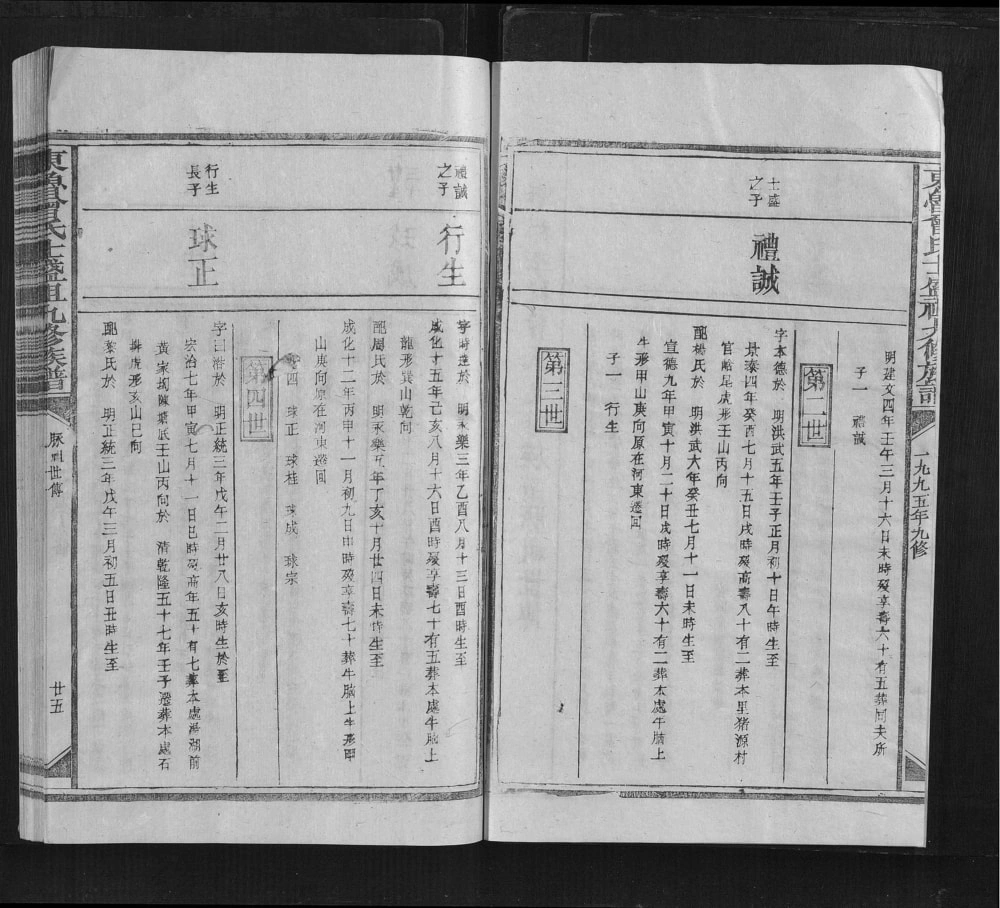 東魯曾氏士盛祖九修族譜
一九九五年九修
明建文四年壬午三月十六日未時殁享壽六十有五葬同夫所
子一 禮誠
第二世
士盛之子
禮誠
字本德於 明洪武五年壬子正月初十日午時生至
景泰四年癸酉七月十五日戌時殁高壽八十有二葬本里猪源村
官蛤尾虎形壬山丙向
配楊氏於 明洪武六年癸丑七月十一日未時生至
宣德九年甲寅十月二十日戌時殁享壽六十有二葬本處牛腦上
牛形甲山庚向原在河東遷回
子一 行生
第三世
禮誠之子
行生
字時達於 明永樂三年乙酉八月十三日酉時生至
成化十五年己亥八月十六日酉時殁享壽七十有五葬本處牛腦上
龍形巽山乾向
配周氏於 明永樂五年丁亥十月廿四日未時生至
成化十二年丙申十一月初九日申時殁享壽七十葬牛腦上牛形甲
山庚向原在河東遷回
子四 球正 球桂 球成 球宗
第四世
行生長子
球正
字曰浩於 明正統三年戊午二月廿八日亥時生於至
弘治七年甲寅七月十一日巳時殁高年五十有七葬本處湯湖前
黃家坳陳塘氐壬山丙向於 清乾隆五十七年壬子遷葬本處石
井虎形亥山巳向
配黎氏於 明正統三年戊午三月初五日丑時生至
東魯曾氏士盛祖九修族譜
世傳
廿五